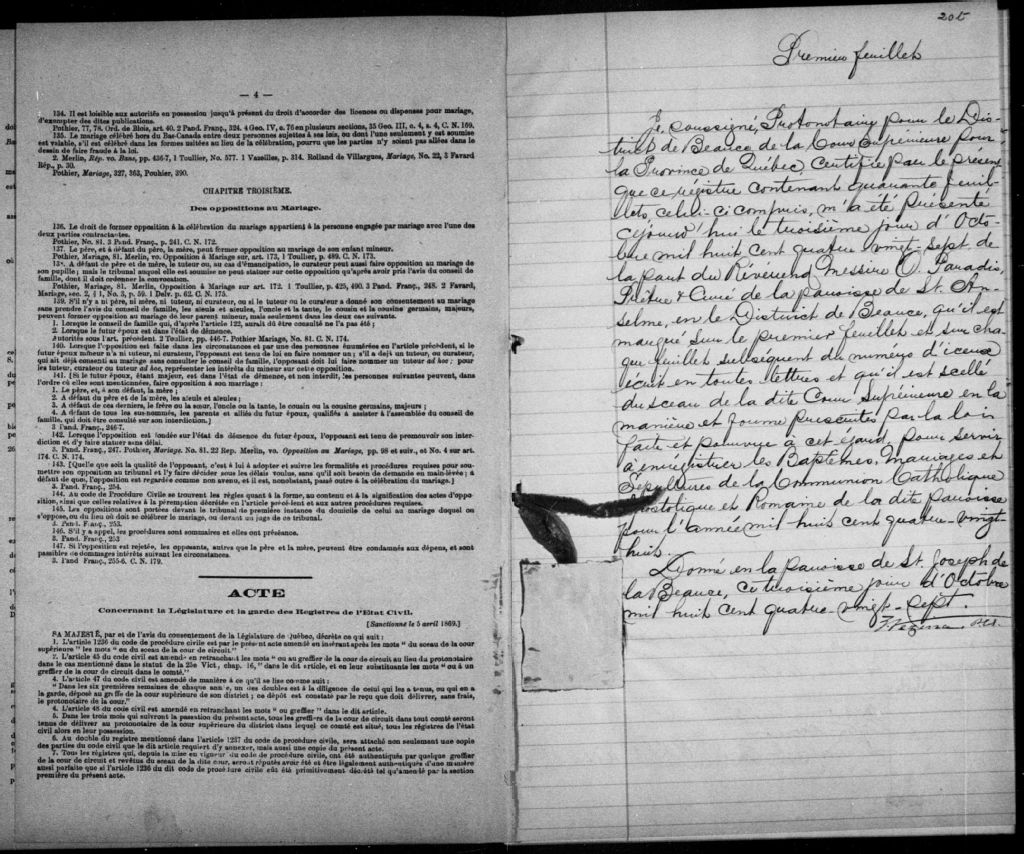 — 4 —
134. Il est loisible aux autorités en possession jusqu'à présent du droit d'accorder des licences ou dispenses pour mariage,
d'exempter des dites publications.
Pothier, 77, 78. Ord. de Blois, art. 40. 2 Pand. Franç., 324. 4 Geo. IV, c. 76 en plusieurs sections, 35 Geo. III, c. 4, s. 4, C. N. 169.
135. Le mariage célébré hors du Bas-Canada entre deux personnes sujettes à ses lois, ou dont l'une seulement y est soumise
est valable, s'il est célébré dans les formes usitées au lieu de la célébration, pourvu que les parties n'y soient pas allées dans le
dessin de faire fraude à la loi.
2. Merlin, Rép. vo. Bans, pp. 436-7, 1 Toullier, No. 577. 1 Vazeilles, p. 314. Rolland de Villargues, Mariage, No. 22, 3 Favard
Rép., p. 30.
Pothier, Mariage, 327, 363, Pouhier, 390.
CHAPITRE TROISIÈME.
Des oppositions au Mariage.
136. Le droit de former opposition à la célébration du mariage appartient à la personne engagée par mariage avec l'une des
deux parties contractantes.
Pothier, No. 81. 3 Pand. Franç., p. 241. C. N. 172.
137. Le père, et à défaut du père, la mère, peut former opposition au mariage de son enfant mineur.
Pothier, Mariage, 81. Merlin, vo. Opposition à Mariage sur, art. 173, 1 Toullier, p. 489. C. N. 173.
A défaut de père et de mère, le tuteur ou, au cas d'émancipation, le curateur peut aussi faire opposition au mariage de
son pupille; mais le tribunal auquel elle est soumise ne peut statuer sur cette opposition qu'après avoir pris l'avis du conseil de
famille, dont il doit ordonner la convocation.
Pothier, Mariage, 81, Merlin, Opposition à Mariage sur art. 172. 1 Toullier, p. 425, 490. 3 Pand. Franç., 248. 2 Favard,
Mariage, sec. 2, § 1, No. 5, p. 59. 1 Delv. p. 62. C. N. 175.
139. S'il n'y a ni père, ni mère, ni tuteur, ni curateur, ou si le tuteur ou le curateur a donné son consentement au mariage
sans prendre l'avis du conseil de famille, les aïeuls et aïeules, l'oncle et la tante, le cousin et la cousine germains, majeurs,
peuvent former opposition au mariage de leur parent mineur, mais seulement dans les deux cas suivants.
1. Lorsque le conseil de famille qui, d'après l'article 122, aurait dû être consulté ne l'a pas été;
2. Lorsque le futur époux est dans l'état de démence.
Autorités sous l'art. précédent. 2 Toullier, pp. 446-7. Pothier Mariage, No. 81. C. N. 174.
140. Lorsque l'opposition est faite dans les circonstances et par une des personnes énumérées en l'article précédent, si le
futur époux mineur n'a ni tuteur, ni curateur, l'opposant est tenu de lui en faire nommer un; s'il a déjà un tuteur, ou curateur,
qui ait déjà consenti au mariage sans consulter le conseil de famille, l'opposant doit lui faire nommer un tuteur ad hoc; pour
les tuteur, curateur ou tuteur ad hoc, représenter les intérêts du mineur sur cette opposition.
141. [Si le futur époux, étant majeur, est dans l'état de démence, et non interdit, les personnes suivantes peuvent, dans
l'ordre où elles sont mentionnées, faire opposition à son mariage:
1. Le père, et, à son défaut, la mère;
2. A défaut du père et de la mère, les aïeuls et aïeules;
3. A défaut de ces derniers, le frère ou la sœur, l'oncle ou la tante, le cousin ou la cousine germains, majeurs;
4. A défaut de tous les sus-nommés, les parents et alliés du futur époux, qualifiés à assister à l'assemblée du conseil de
famille, qui doit être consulté sur son interdiction.]
3 Pand. Franç., 246-7.
142. Lorsque l'opposition est fondée sur l'état de démence du futur époux, l'opposant est tenu de promouvoir son inter-
diction et d'y faire statuer sans délai.
3. Pand. Franç., 247. Pothier, Mariage, No. 81. 22 Rep. Merlin, vo. Opposition au Mariage, pp. 98 et suiv., et No. 4 sur art.
174. C. N. 174.
143. [Quelle que soit la qualité de l'opposant, c'est à lui à adopter et suivre les formalités et procédures requises pour sou-
mettre son opposition au tribunal et l'y faire décider sous les délais voulus, sans qu'il soit besoin de demande en main-levée; à
défaut de quoi, l'opposition est regardée comme non avenu, et il est, nonobstant, passé outre à la célébration du mariage.]
3. Pand. Franç., 254.
144. Au code de Procédure Civile se trouvent les règles quant à la forme, au contenu et à la signification des actes d'oppo-
sition, ainsi que celles relatives à la péremption décrétée en l'article précédent et aux autres procédures requises.
145. Les oppositions sont portées devant le tribunal de première instance du domicile de celui au mariage duquel on
s'oppose, ou du lieu où doit se célébrer le mariage, ou devant un juge de ce tribunal.
3. Pand. Franç., 253.
146. S'il y a appel, les procédures sont sommaires et elles ont préséance.
3. Pand. Franç., 253
147. Si l'opposition est rejetée, les opposants, autres que le père et la mère, peuvent être condamnés aux dépens, et sont
passibles de dommages intérêts suivant les circonstances.
3. Pand Franç., 255-6. C. N. 179.
ACTE
Concernant la Législature et la garde des Registres de l'Etat Civil.
[Sanctionné le 5 avril 1869.]
SA MAJESTÉ, par et de l'avis du consentement de la Législature de Québec, décrète ce qui suit:
1. L'article 1236 du code de procédure civile est par le présent acte amendé en insérant après les mots "du sceau de la cour
supérieure" les mots "ou du sceau de la cour de circuit."
2. L'article 45 du code civil est amendé en retranchant les mots "ou au greffier de la cour de circuit au lieu du protonotaire
dans le cas mentionné dans le statut de la 25e Vict., chap. 16," dans le dit article, et en leur substituants les mots "ou à un
greffier de la cour de circuit dans le comté."
4. L'article 47 du code civil est amendé de manière à ce qu'il se lise comme suit:
"Dans les six premières semaines de chaque année, un des doubles est à la diligence de celui qui les a tenus, ou qui en a
la garde, déposé au greffe de la cour supérieure de son district; ce dépôt est constaté par le reçu que doit délivrer, sans frais,
le protonotaire de la cour."
4. L'article 48 du code civil est amendé en retranchant les mots "ou greffier" dans le dit article.
5. Dans les trois mois qui suivront la passation du présent acte, tous les greffiers de la cour de circuit dans tout comté seront
tenus de délivrer au protonotaire de la cour supérieure du district dans lequel ce comté est situé, tous les régistres de l'état
civil alors en leur possession.
6. Au double du registre mentionné dans l'article 1237 du code de procédure civile, sera attaché non seulement une copie
des parties du code civil que le dit article requiert d'y annexer, mais aussi une copie du présent acte.
7. Tous les régistres qui, depuis la mise en vigueur du code de procédure civile, ont été authentiqués par quelque greffier
de la cour de circuit et revêtus du sceau de la dite cour, seront réputés avoir été et être légalement authentiqués d'une manière
aussi parfaite que si l'article 1236 du dit code de procédure civile eût été primitivement décrété tel qu'amendé par la section
première du présent acte.
205
Premier feuillet
Je, soussigné, Protonotaire pour le Dis-
trict de Beauce de la Cour Supérieure pour
la Province de Québec, Certifie par le présent
que ce régistre contenant quarante feuil-
lets, celui-ci compris, m'a été présenté
cejourd'hui le troisième jour d'Octo-
bre mil huit cent quatre vingt-sept de
la part du Révérend Messire O. Paradis,
Prêtre & Curé de la paroisse de St. An-
selme, en le District de Beauce, qu'il est
marqué sur le premier feuillet et sur cha-
que feuillet subséquent du numéro d'iceux
écrit en toutes lettres et qu'il est scellé
du sceau de la dite Cour Supérieure en la
manière et forme prescrites par la loi
faite et pourvue à cet égard, pour servir
à enrégistrer les Baptêmes, Mariages et
Sépultures de la Communion Catholique
Apostolique et Romaine de la dite paroisse
pour l'année mil huit cent quatre-vingt
huit.
Donné en la paroisse de St. Joseph de
la Beauce, ce troisième jour d'Octobre
mil huit cent quatre-vingt-sept.